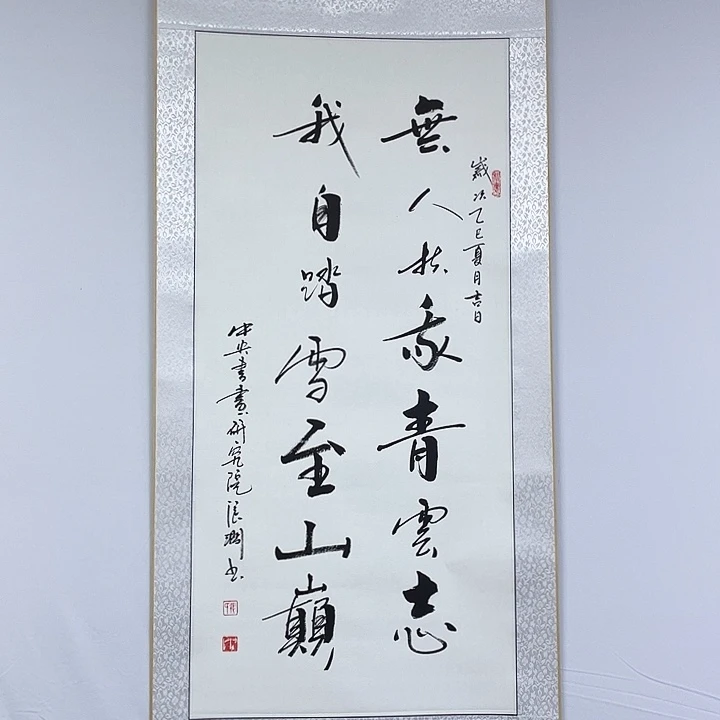 歲次乙巳夏月吉日
無人扶我青雲志
我自踏雪至山巔
中央書畫研究院張湖書